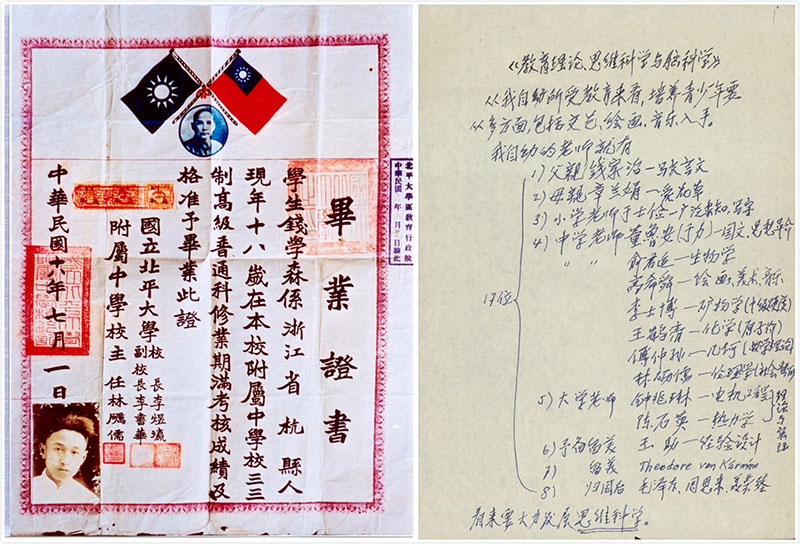 畢業證書
學生錢學森係浙江省杭縣人
現年十八歲在本校附屬中學校三三
制高級普通科修業期滿考核成績及
格准予畢業此證
國立北平大學校
校長李煜瀛
副校長李書華
附屬中學校主任林礪儒
中華民國十八年七月一日
北平大學區教育行政院
中華民國 年 月 日驗訖
《教育理论、思维科学与脑科学》
从我自幼所受教育来看,培养青少年要
从多方面,包括文艺、绘画、音乐入手。
我自幼的老师就有
17位
1) 父亲 钱家治—写文言文
2) 母亲 章兰娟—爱花草
3) 小学老师 于士俭—广泛求知,写字
4) 中学老师 董鲁安(于力)—国文,思想革命
〃 〃 俞君适—生物学
高希舜—绘画、美术、音乐
李士博—矿物学(十级硬度)
王鹤清—化学(原子价)
傅仲孙—几何(数学理论)
林砺儒—伦理学(社会
5) 大学老师 钟兆琳—电机工程
陈石英—热力学
理论与实际
6) 予备留美 王助—经验设计
7) 留美 Theodore von Kármán
8) 归国后 毛泽东、周恩来、聂荣臻
看来要大力发展思维科学。